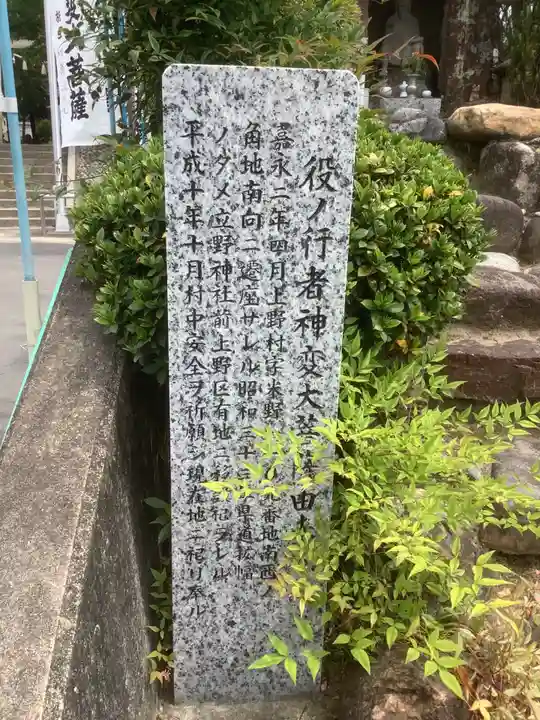 役ノ行者神変大菩薩由
嘉永二年四月上野村字米野 番地南西ノ
角地南向ニ遷座サレル昭和三十 県道拡幅
ノタメ立野神社前上野区有地ニ移 祀ラレル
平成十年十月村中安全ヲ祈願シ現在地ニ祀リ奉ル
菩薩